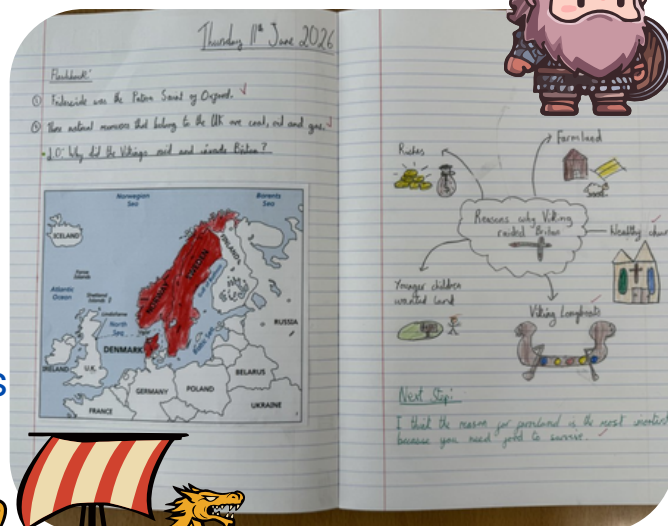 Thursday 11th June 2026
Flashback:
① Frideswide was the Patron Saint of Oxford.
② Three natural resources that belong to the UK are coal, oil and gas.
L.O: Why did the Vikings raid and invade Britain?
Norwegian Sea
Barents Sea
ICELAND
Faroe Islands
Shetland Islands
Atlantic Ocean
Lindisfarne
North Sea
NORWAY
SWEDEN
FINLAND
Baltic Sea
RUSSIA
DENMARK
IRELAND
U.K.
GERMANY
POLAND
BELARUS
UKRAINE
FRANCE
Riches
Farmland
Reasons why Viking
raided Britain
Wealthy
Younger children
wanted land
Viking Longboats
Next Step:
I think the reason for farmland is the most
because you need food to survive.
s